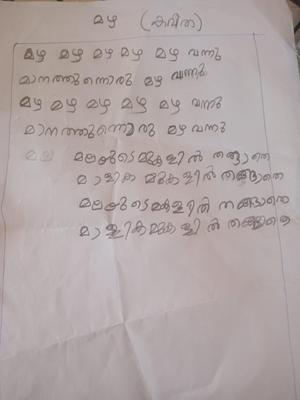 മഴ (കവിത)
മഴ മഴ മഴ മഴ മഴ വന്നു
മാനത്തുന്നൊരു മഴ വന്നു
മഴ മഴ മഴ മഴ മഴ വന്നു
മാനത്തുന്നൊരു മഴ വന്നു
മല മലയുടെ മുകളിൽ തങ്ങാതെ
മാളിക മുകളിൽ തങ്ങാതെ
മലയുടെ മുകളിൽ തങ്ങാതെ
മാളിക മുകളിൽ തങ്ങാതെ